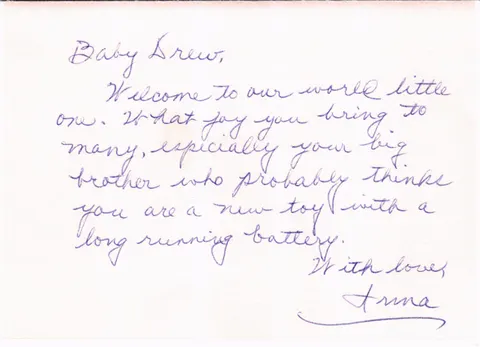 Baby Drew,
Welcome to our world little
one. What joy you bring to
many, especially your big
brother who probably thinks
you are a new toy with a
long running battery.
With love,